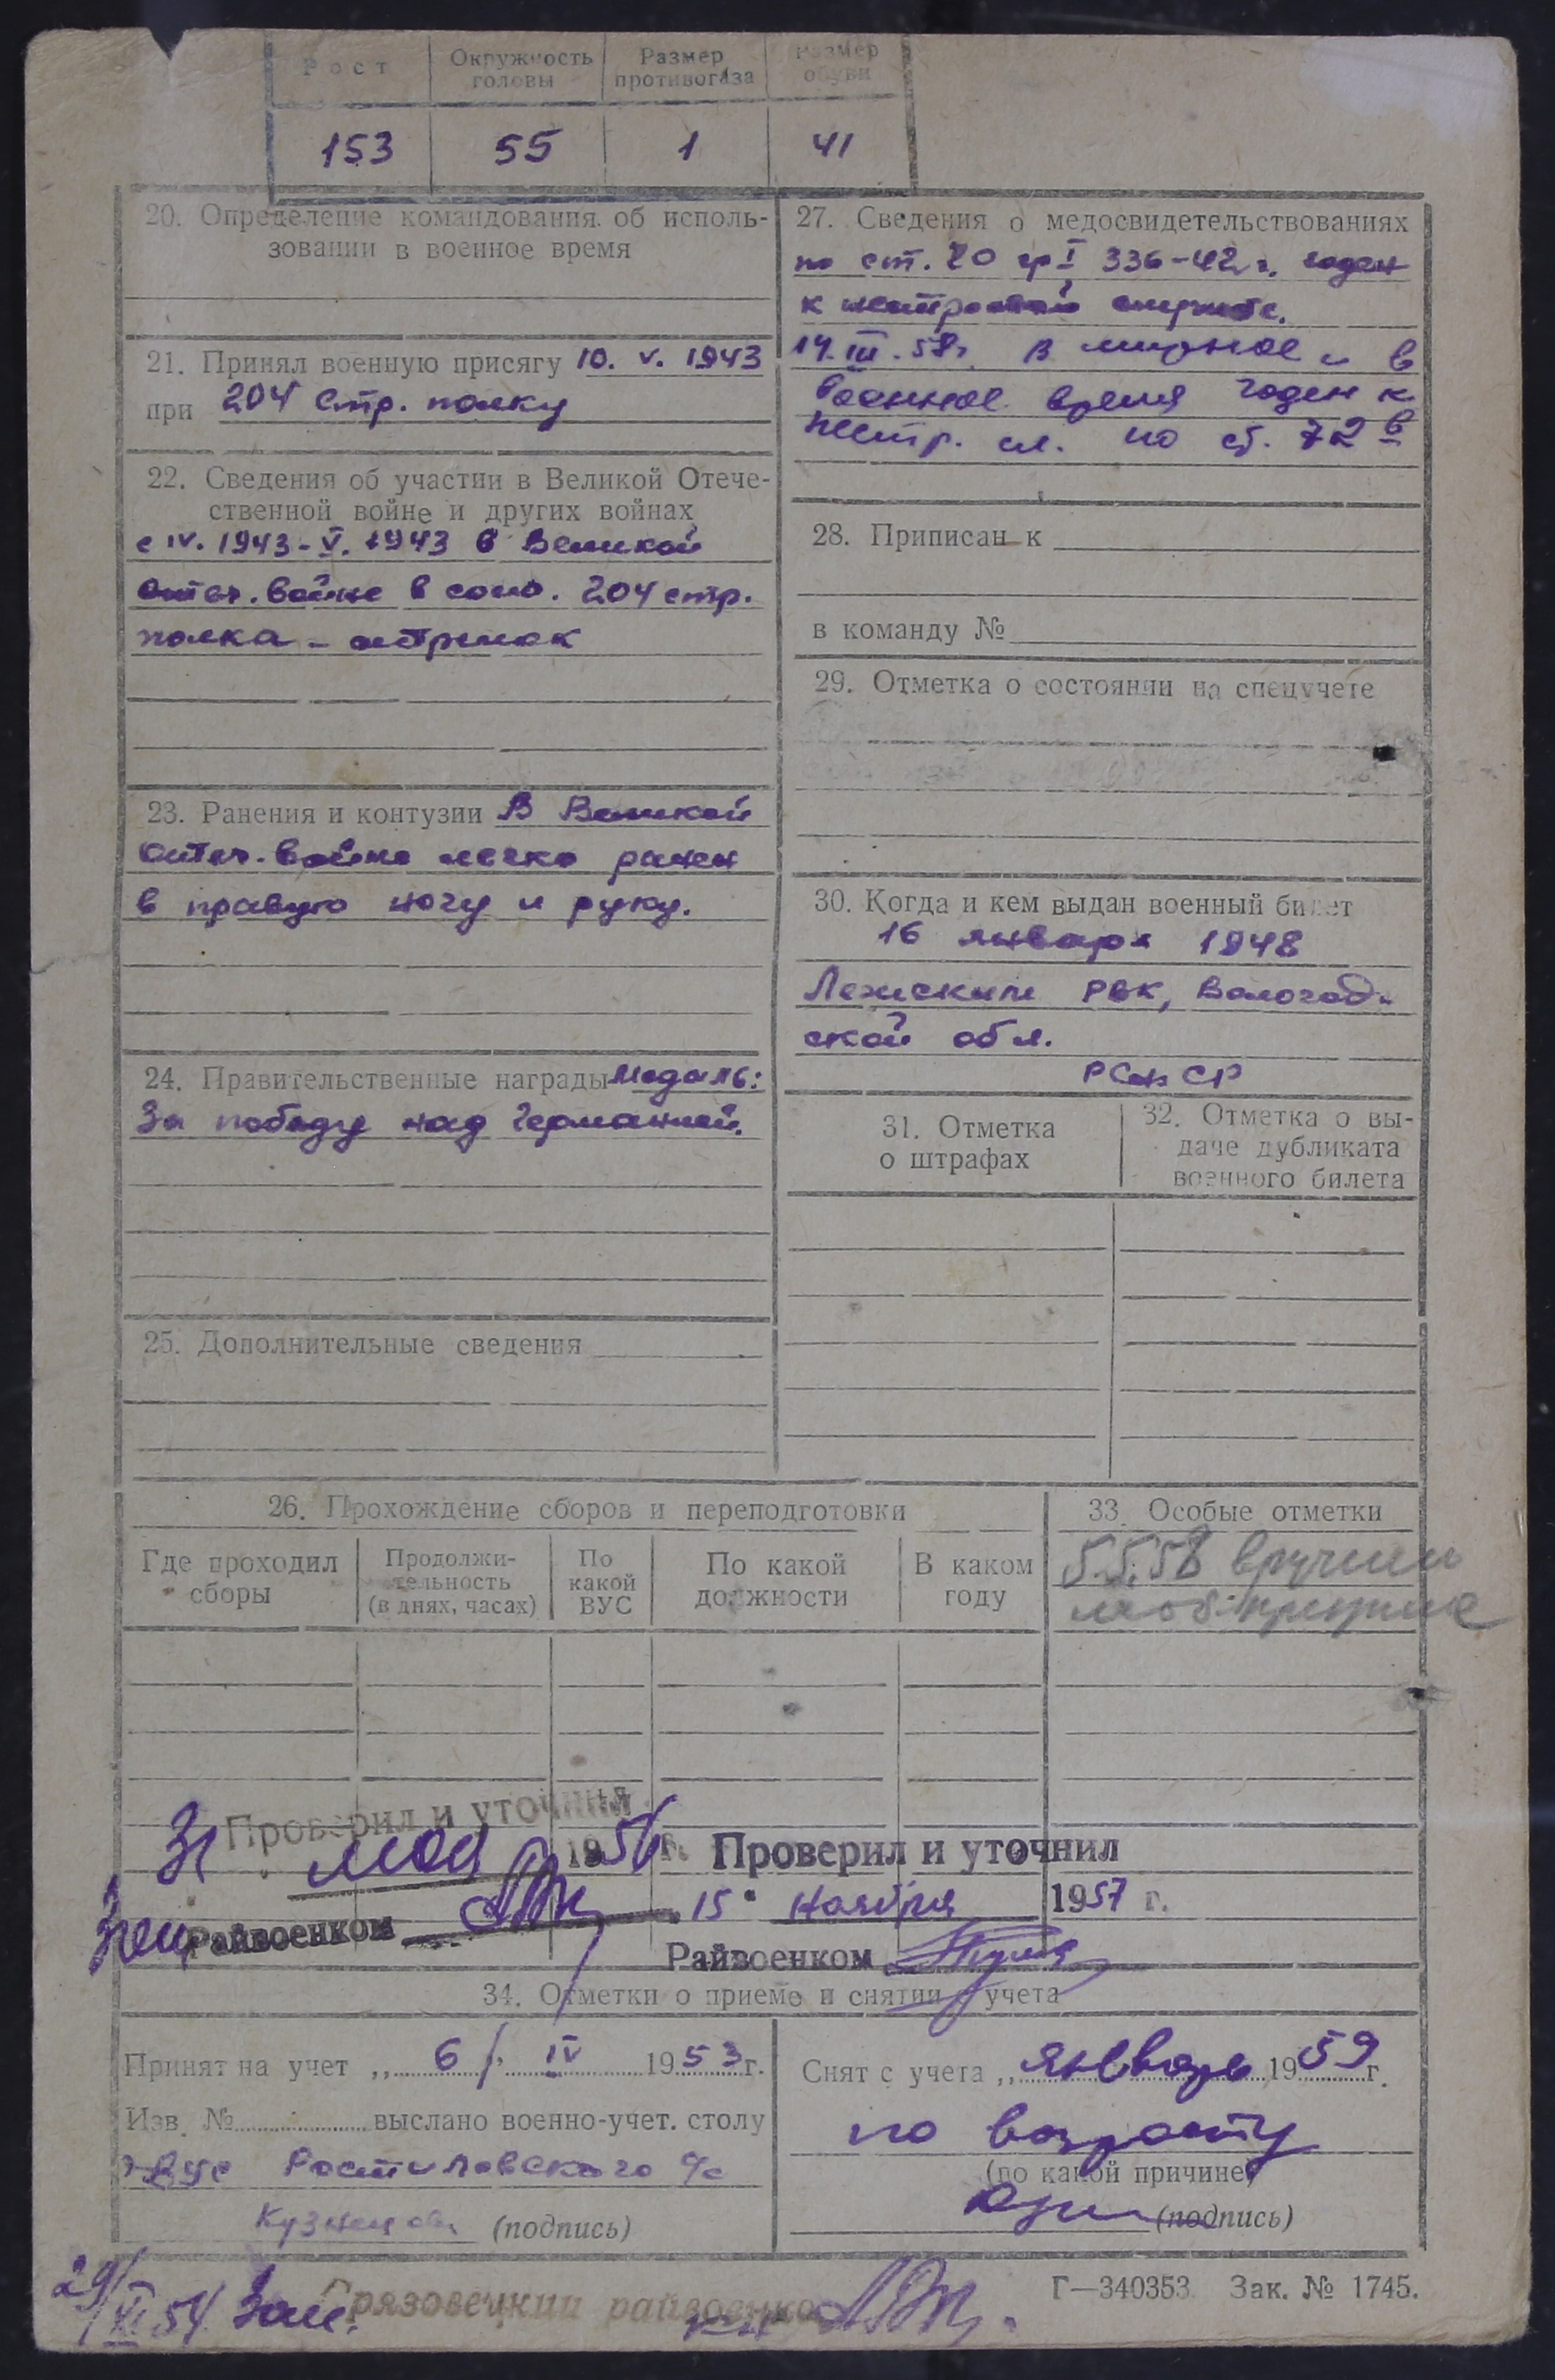 Рост
Окружность головы
Размер противогаза
Размер обуви
153 55 1 41
20. Определение командования об исполь-
зовании в военное время
21. Принял военную присягу 10. V. 1943
при 204 стр. полку
22. Сведения об участии в Великой Отече-
ственной войне и других войнах
с IV. 1943 - V. 1943 в Великой
Отеч. войне в сост. 204 стр.
полка - стрелок
23. Ранения и контузии В Великой
Отеч. войне легко ранен
в правую ногу и руку.
24. Правительственные награды Медаль:
За победу над Германией.
25. Дополнительные сведения
27. Сведения о медосвидетельствованиях
по ст. 20 гр I 336-42 г. годен
к нестроевой службе.
14. III. 58г. В мирное и в
военное время годен к
нестр. сл. по ст. 72 в
28. Приписан к
в команду №
29. Отметка о состоянии на спецучете
30. Когда и кем выдан военный билет
16 января 1948
Лежским РВК, Вологод-
ской обл.
РСФСР
31. Отметка
о штрафах
32. Отметка о вы-
даче дубликата
военного билета
26. Прохождение сборов и переподготовки
Где проходил
сборы
Продолжи-
тельность
(в днях, часах)
По
какой
ВУС
По какой
должности
В каком
году
33. Особые отметки
5.5.58 вручили
моб.
Проверил и уточнил
31 мая 1956 г.
Райвоенком
Проверил и уточнил
15 ноября 1957 г.
Райвоенком
34. Отметки о приеме и снятии с учета
Принят на учет „ 6 " IV 1953 г.
Изв. № выслано военно-учет. столу
ВУС Ростиловского с/с
Кузнецова (подпись)
Снят с учета „ январь 1959 г.
по возрасту
(по какой причине)
(подпись)
29/XI 54 Зам. Грязовецкий райвоенком
Г—340353 Зак. № 1745.